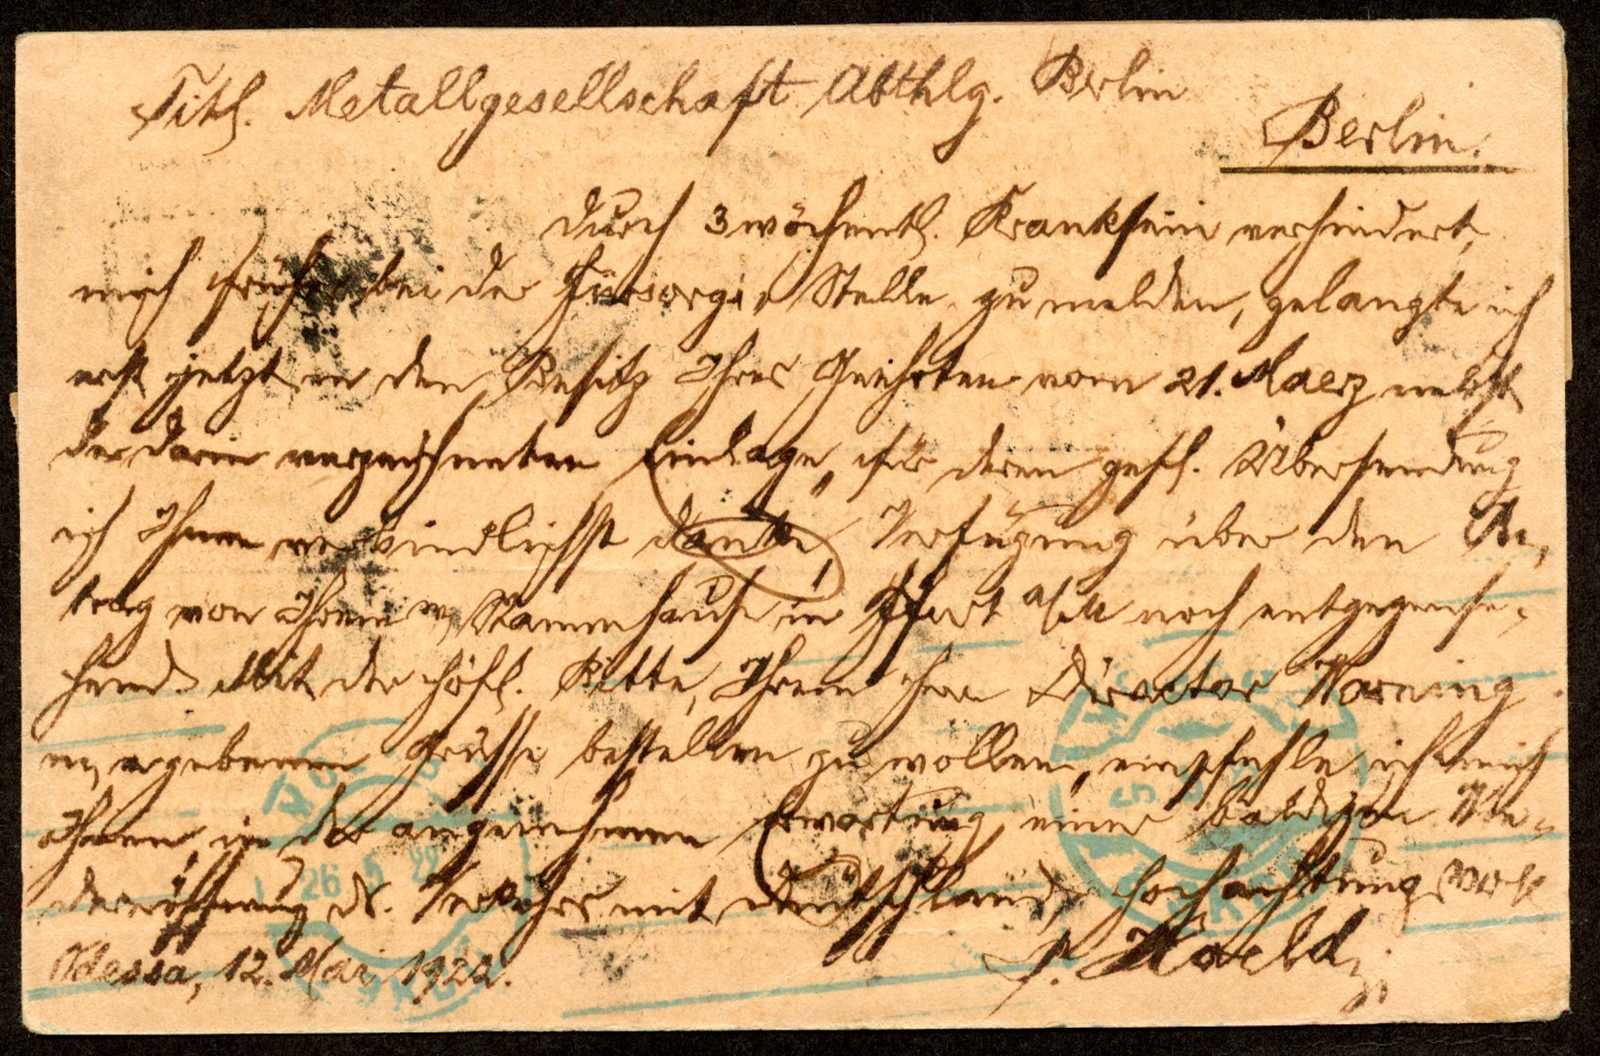 Titl. Metallgesellschaft Abthlg. Berlin
Berlin.
Durch 3 wöchentl. Kranksein verhindert,
mich früher bei der Fürsorge Stelle zu melden, gelangte ich
erst jetzt in den Besitz Ihres Geehrten vom 21. Maerz nebst
der darin verzeichneten Einlage, für deren gefl. Übersendung
ich Ihnen verbindlichst danke, Verfügung über den An-
trag von Ihrem w. Stammhause in Ffurt a/M noch entgegense-
hend. Mit der höfl. Bitte, Ihrem Herrn Director Horning
m. ergebenen Grüsse bestellen zu wollen, empfehle ich mich
Ihnen, in der angenehmen Erwartung einer baldigen Wie-
dereröffnung ds. Verkehrs mit Deutschland, hochachtungsvoll
Odessa, 12. Mai 1922.
26 5 22